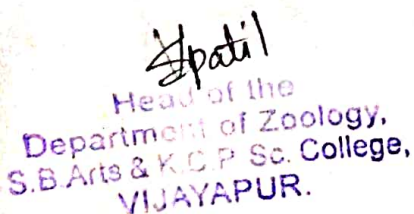 Spatil
Head of the
Department of Zoology,
S.B.Arts & K.C.P. Sc. College,
VIJAYAPUR.